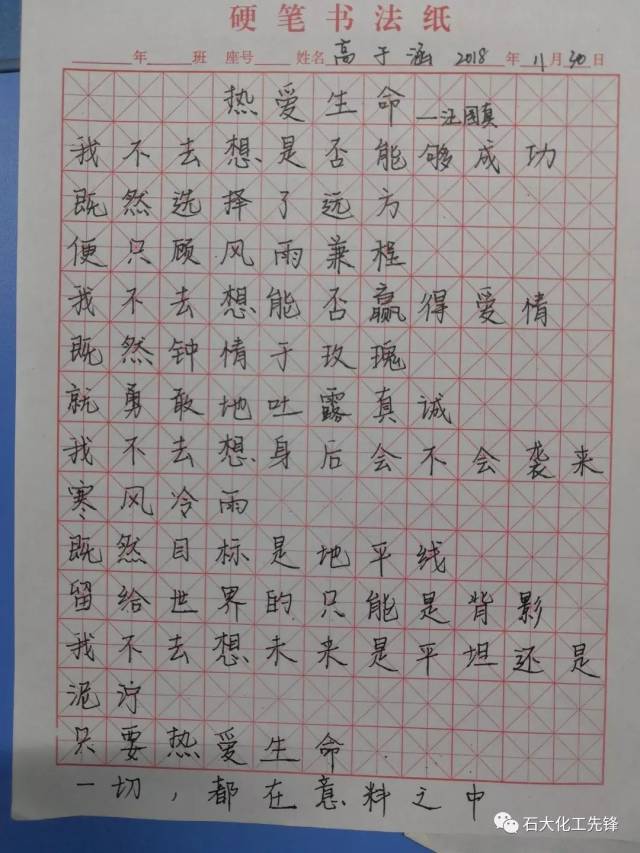 硬笔书法纸
年 班 座号 姓名 高于涵 2018 年 11 月 30 日
热爱生命
—汪国真
我不去想是否能够成功
既然选择了远方
便只顾风雨兼程
我不去想能否赢得爱情
既然钟情于玫瑰
就勇敢地吐露真诚
我不去想身后会不会袭来
寒风冷雨
既然目标是地平线
留给世界的只能是背影
我不去想未来是平坦还是
泥泞
只要热爱生命
一切，都在意料之中
石大化工先锋